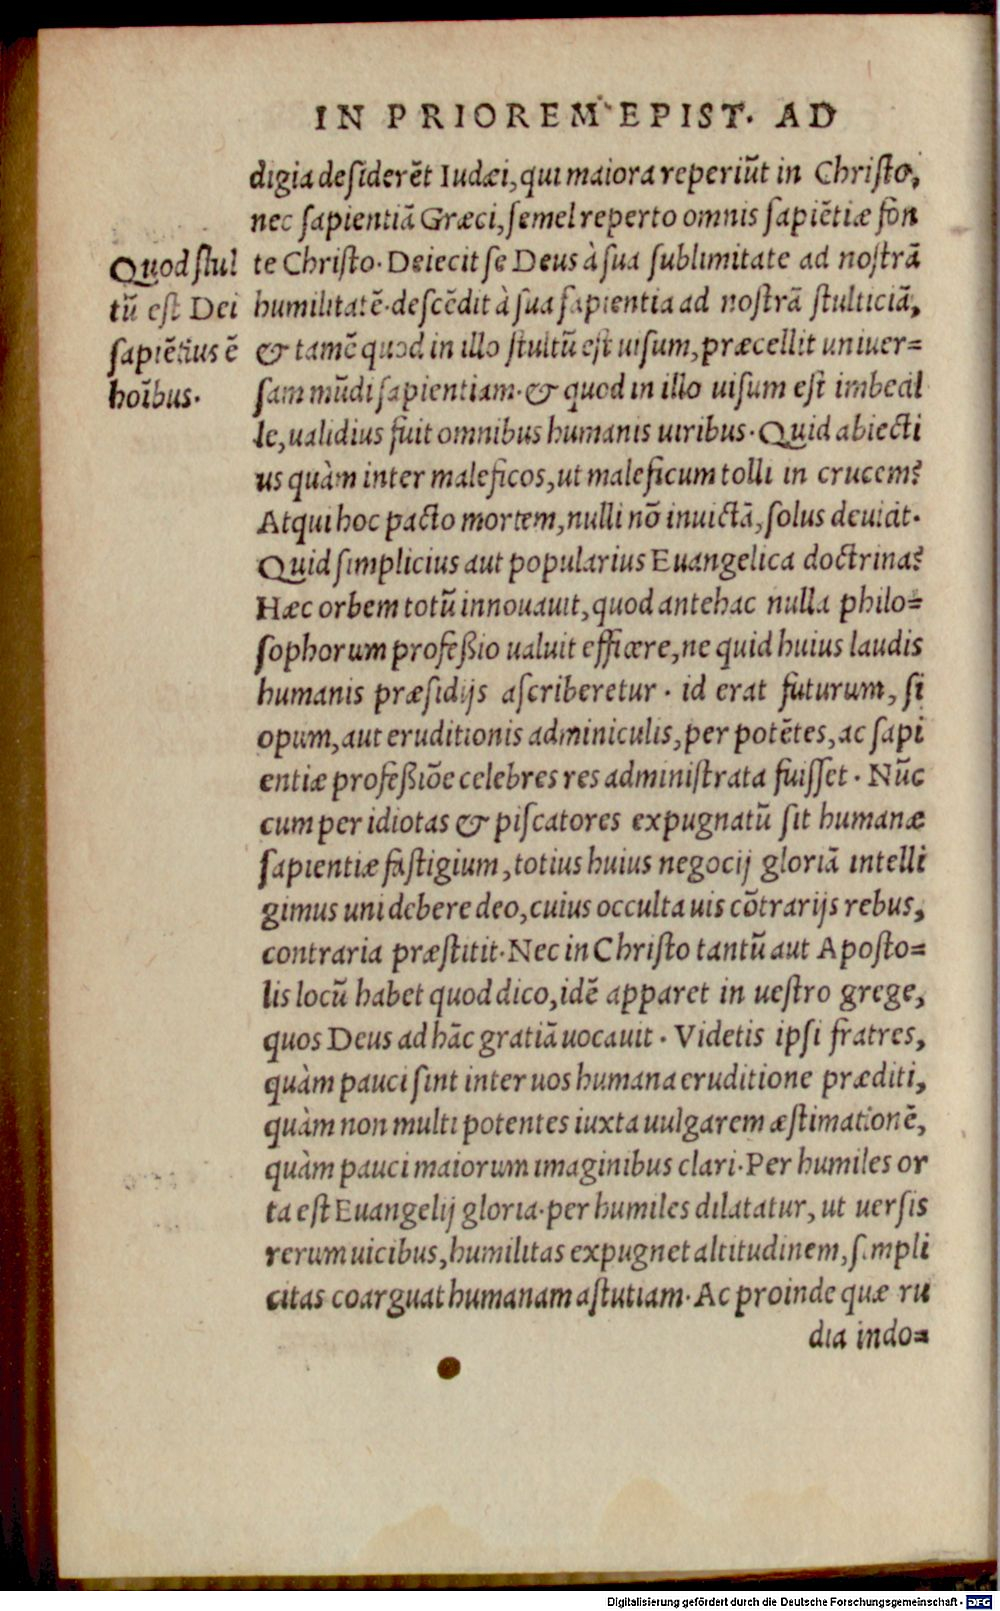 IN PRIOREM EPIST. AD
digia desiderēt Iudæi, qui maiora reperiūt in Christo,
nec sapientiā Græci, semel reperto omnis sapiētiæ fon
te Christo. Deiecit se Deus à sua sublimitate ad nostrā
humilitatē. descēdit à sua sapientia ad nostrā stulticiā,
& tamē quod in illo stultū est uisum, præcellit uniuer=
sam mūdi sapientiam. & quod in illo uisum est imbecil
le, ualidius fuit omnibus humanis uiribus. Quid abiecti
us quàm inter maleficos, ut maleficum tolli in crucem?
Atqui hoc pacto mortem, nulli nō inuictā, solus deuicit.
Quid simplicius aut popularius Euangelica doctrina?
Hæc orbem totū innouauit, quod antehac nulla philo=
sophorum profeßio ualuit efficere, ne quid huius laudis
humanis præsidijs ascriberetur. id erat futurum, si
opum, aut eruditionis adminiculis, per potētes, ac sapi
entiæ profeßiōe celebres res administrata fuisset. Nūc
cum per idiotas & piscatores expugnatū sit humanæ
sapientiæ fastigium, totius huius negocij gloriā intelli
gimus uni debere deo, cuius occulta uis cōtrarijs rebus,
contraria præstitit. Nec in Christo tantū aut Aposto=
lis locū habet quod dico, idē apparet in uestro grege,
quos Deus ad hāc gratiā uocauit. Videtis ipsi fratres,
quàm pauci sint inter uos humana eruditione præditi,
quàm non multi potentes iuxta uulgarem æstimationē,
quàm pauci maiorum imaginibus clari. Per humiles or
ta est Euangelij gloria. per humiles dilatatur, ut uersis
rerum uicibus, humilitas expugnet altitudinem, simpli
citas coarguat humanam astutiam. Ac proinde quæ ru
dia indo=
Quod stul
tū est Dei
sapiētius ē
hoībus.
Digitalisierung gefördert durch die Deutsche Forschungsgemeinschaft - DFG